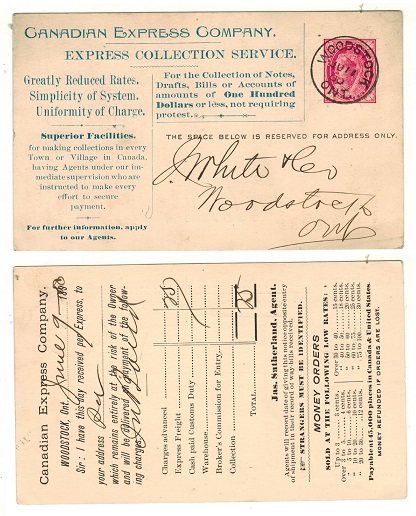 CANADIAN EXPRESS COMPANY.
EXPRESS COLLECTION SERVICE.
Greatly Reduced Rates.
Simplicity of System.
Uniformity of Charge.
For the Collection of Notes,
Drafts, Bills or Accounts of
amounts of One Hundred
Dollars or less, not requiring
protest.
WOODSTOCK
ONT.
Superior Facilities.
for making collections in every
Town or Village in Canada,
having Agents under our Im-
mediate supervision who are
instructed to make every
effort to secure
payment.
For further information, apply
to our Agents.
THE SPACE BELOW IS RESERVED FOR ADDRESS ONLY.
J. White & Co
Woodstock
Ont
Canadian Express Company.
WOODSTOCK, Ont., June 9 189
Sir: I have this day received per Express, to
your address
which remains entirely at the risk of the Owner
and will be delivered on payment of the follow-
ing charges
Charges advanced
Express Freight
Cash paid Customs Duty
Warehouse
Broker's Commission for Entry
Collection
TOTAL
25
25
Jas. Sutherland, Agent.
Agents will record date of giving this notice opposite entry
of shipment in their record of way-bills received.
STRANGERS MUST BE IDENTIFIED.
MONEY ORDERS
SOLD AT THE FOLLOWING LOW RATES:
Payable at 45,000 places in Canada & United States.
MONEY REFUNDED IF ORDERS ARE LOST.